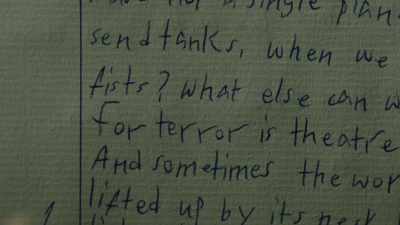 a single plan
send tanks, when we
fists? What else can w
For terror is theatre
And sometimes the wor
lifted up by its